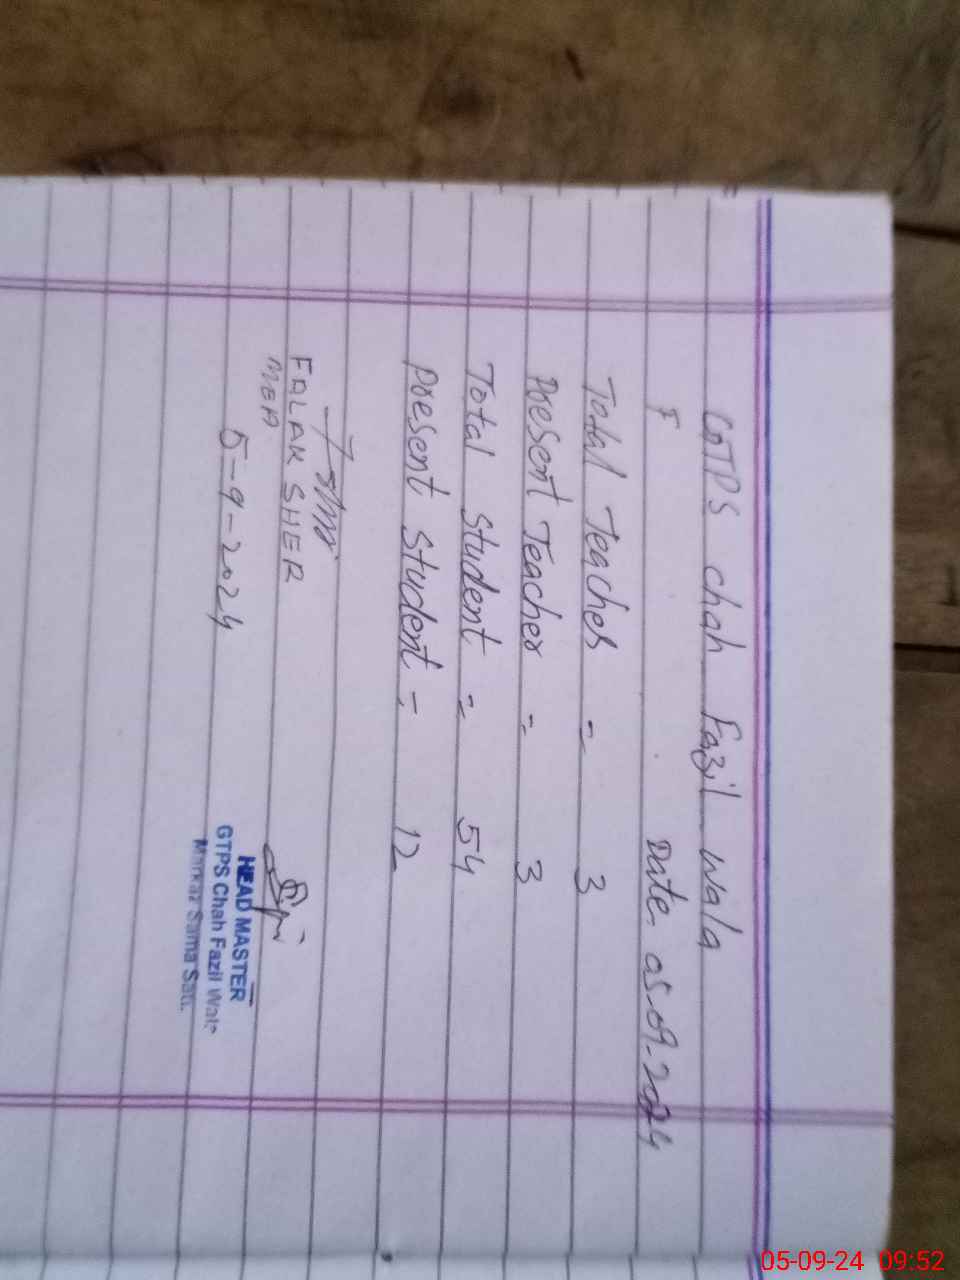 GTPS chah Fazil wala
Date. 05-09-2024
Total Teacher = 3
Present Teacher = 3
Total Student = 54
Present Student = 12
FALAK SHER
MEA
5-9-2024
HEAD MASTER
GTPS Chah Fazil Wala
Markaz Sama Satta.
05-09-24 09:52